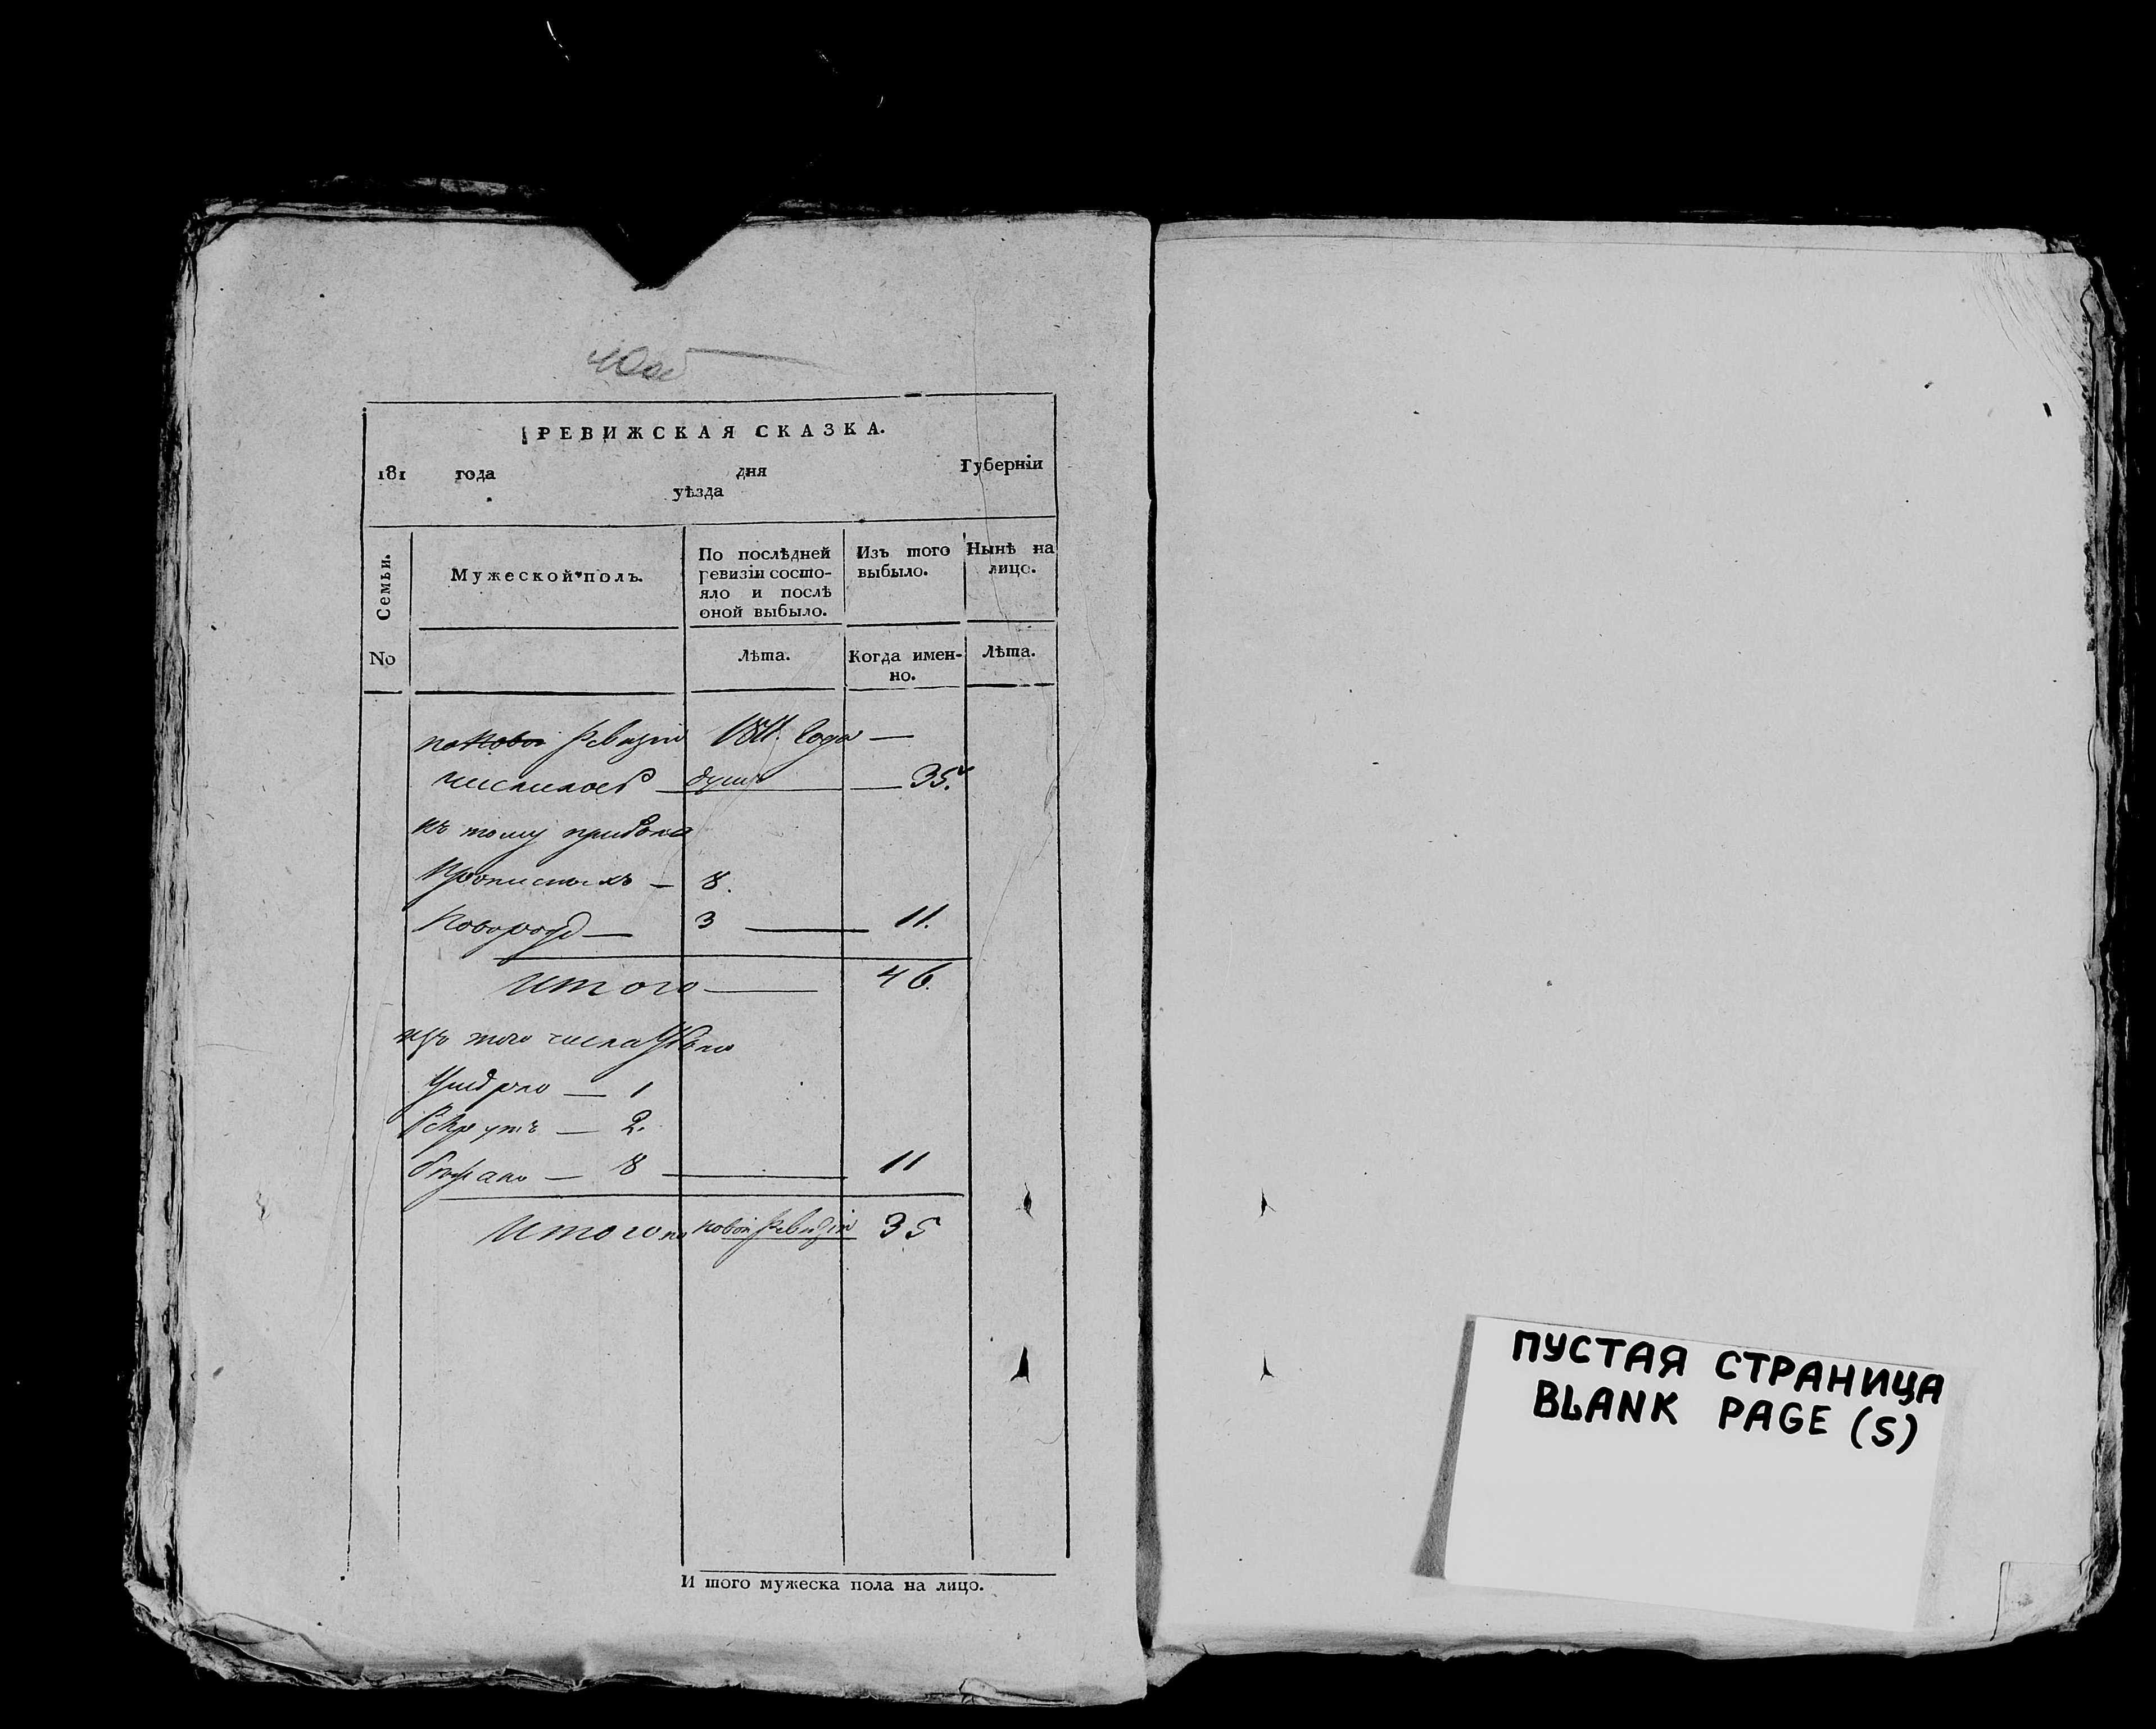 РЕВИЖСКАЯ СКАЗКА.
181 года дня Губерніи
уѣзда
Семьи.
No
Мужеской полъ.
По послѣдней
ревизіи состо-
яло и послѣ
оной выбыло.
Изъ того
выбыло.
Нынѣ на
лицо.
Лѣта.
Когда имен-
но.
Лѣта.
по новой ревизіи 1811. года —
числилось душъ — 35.
къ тому прибыло
Прописныхъ — 8.
Новорожд — 3 — 11.
Итого — 46.
изъ того числа убыло
Умерло — 1
Рекрутъ — 2.
— 8 — 11
Итого по новой ревизіи 35
И того мужеска пола на лицо.
ПУСТАЯ СТРАНИЦА
BLANK PAGE (S)